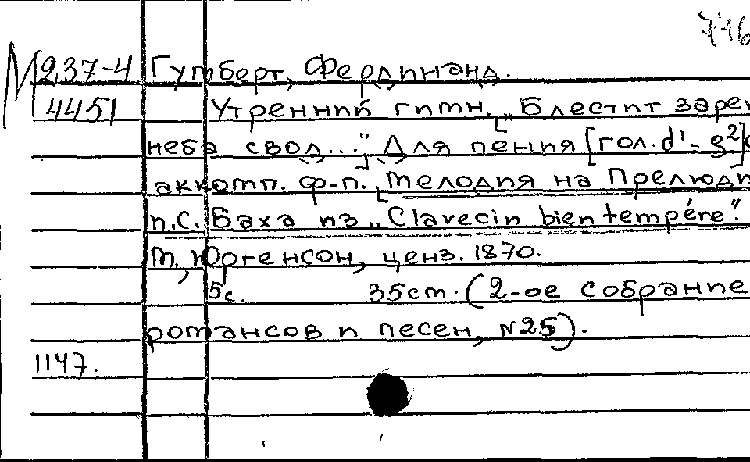 746
М 2,37-4 Гумберт, Фердинанд.
4451 Утренний гимн. „Блестит зарей
неба свод..." Для пения [гол. d¹- g²] с
аккомп. ф-п. Мелодия на Прелюди
И.С. Баха из „Clavecin bien tempére".
М., Юргенсон, ценз. 1870.
5с. 35см. (2-ое собрание
романсов и песен, №25).
1147.